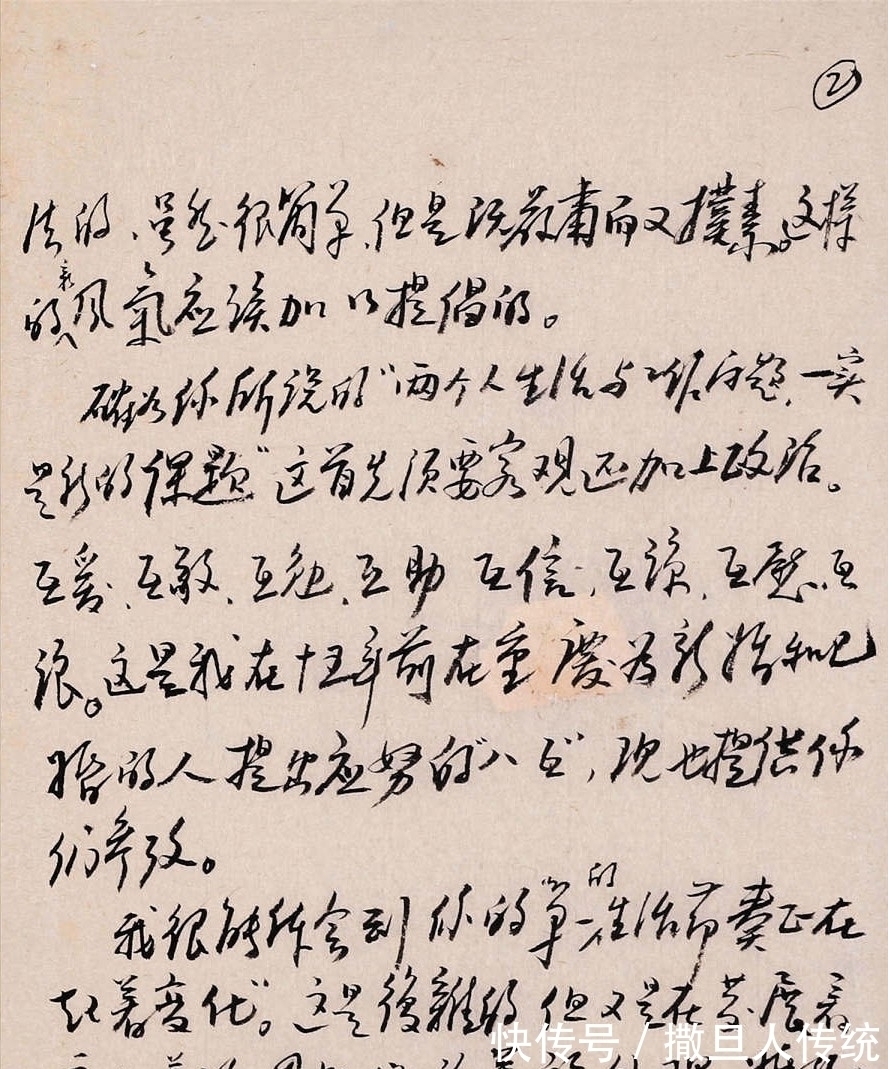 ②
法的、虽然很简单,但是既严肃而又樸素。这样
的風氣应该加以提倡的。
确如你所说的“两个人生活与工作问题,一实
是新的课题”这首先须要客观还加上政治。
互爱、互敬、互勉、互助 互信、互谅、互慰、互
让。这是我在十五年前在重慶为新婚和已
婚的人提出应努的“八互”,现也提供你
们参考。
我很能体会到你的“单一的生活节奏正在
起着变化”。这是復雜的但又是在发展着
快传号 / 撒旦人传统